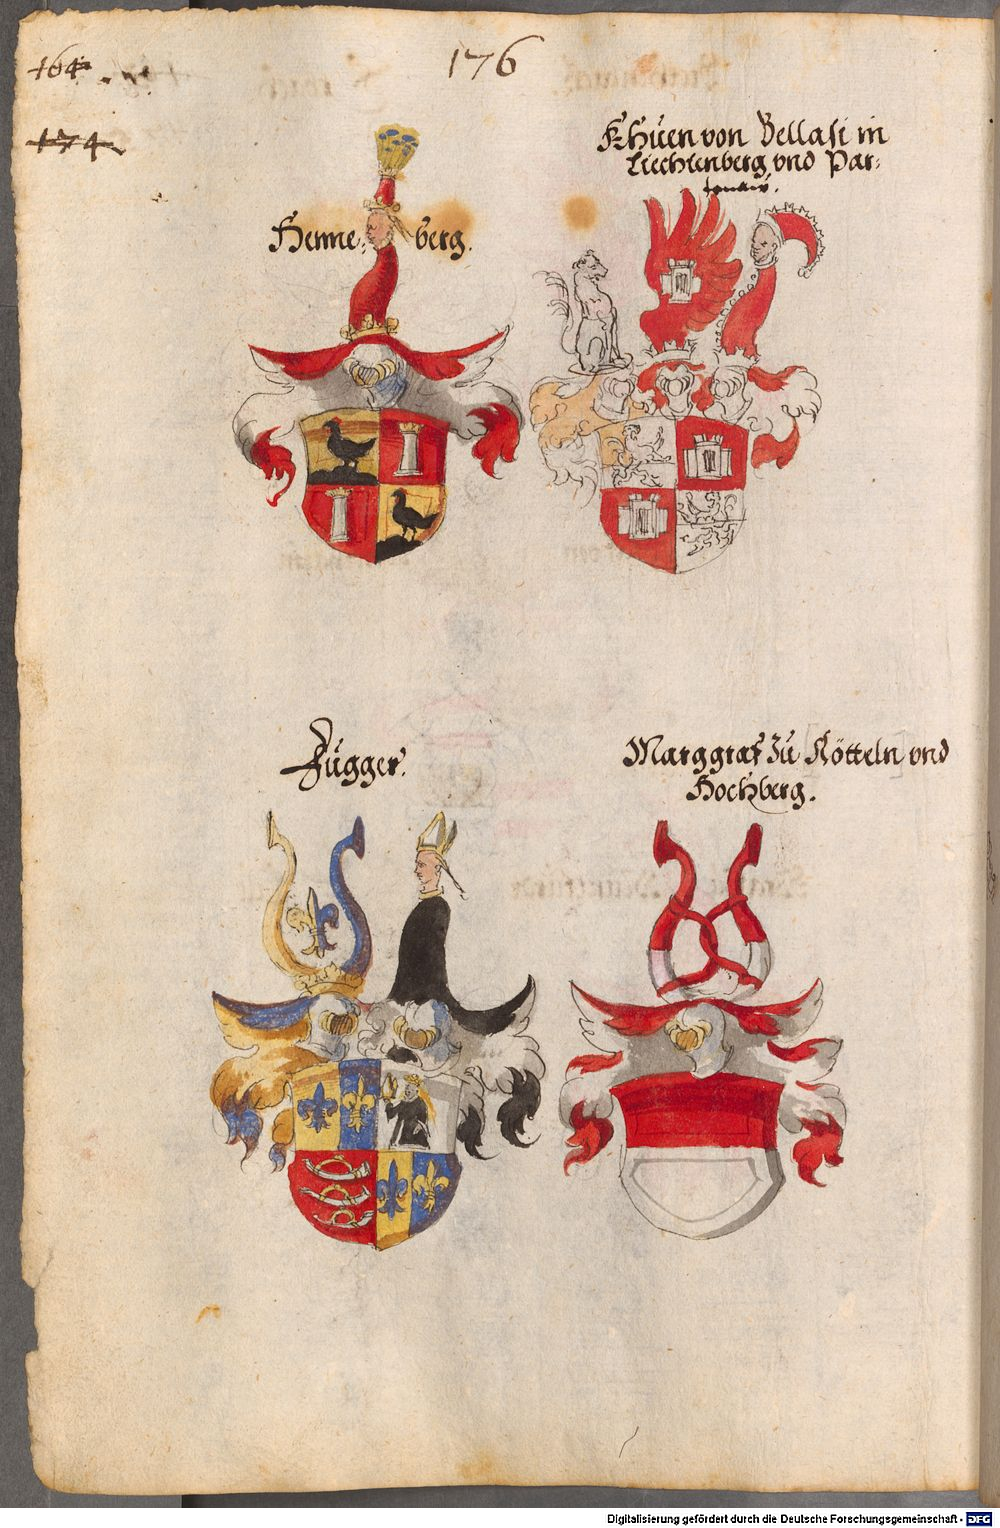 164
176
174
Khuen von Bellasi in
Liechtenberg vnd Par=
tenair.
Henne= berg.
Fugger.
Marggraf Zu Rötteln vnd
Hochberg.
Digitalisierung gefördert durch die Deutsche Forschungsgemeinschaft - DFG